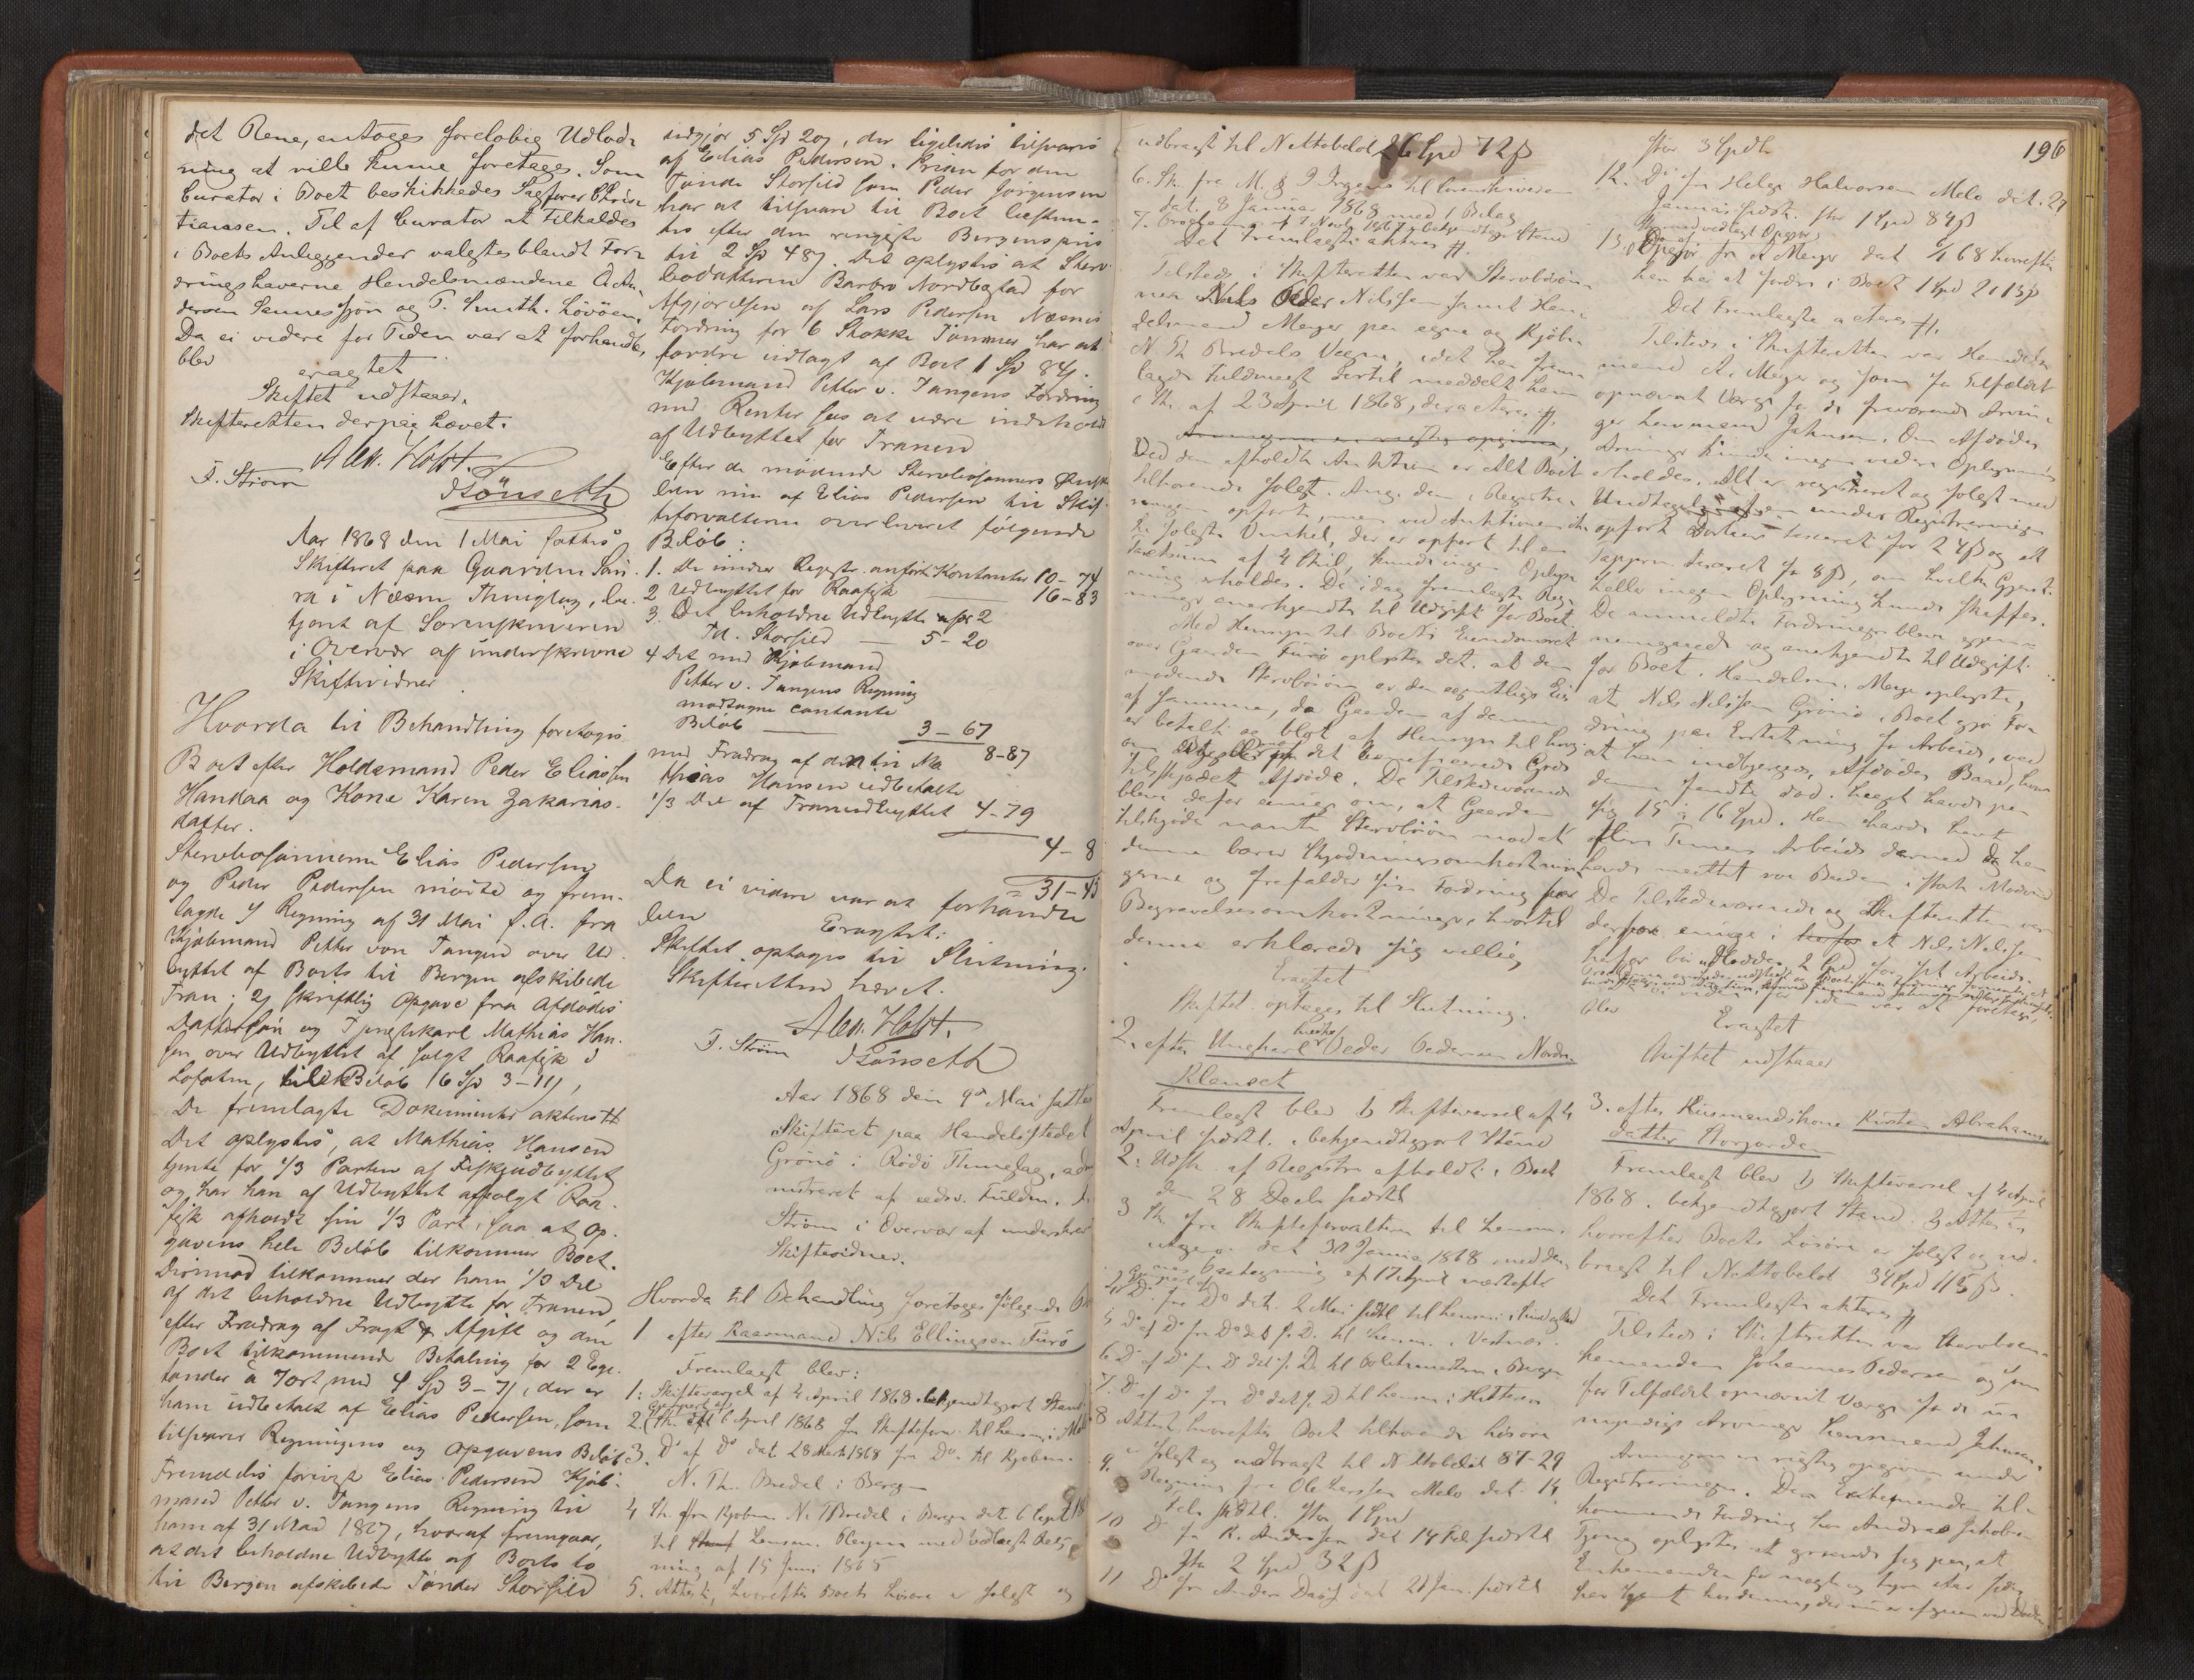 det Rene, antages foreløbig Udlod-
ning at ville kunne foretages. Som
Curator i Boet beskikkedes Sagfører Chris
tiansen. Til af Curator at tilkaldes
i Boets Anliggender valgtes blandt For-
dringshaverne Handelsmændene
Sannessjøen og T. Smith. Løvøen.
Da ei videre for Tiden var at forhandle,
blev eragtet
Skiftet udstaaer.
Skifteretten derpaa hævet.
Alex. Holst.
F. Strøm
Aar 1868 den 1 Mai sattes
Skifteret paa Gaarden San-
ra i Næsne Thinglag, be-
tjent af Sorenskriveren
i Overvær af underskrevne
Skiftevidner.
Hvorda til Behandling foretoges
Boet efter Holdsmand Peder Eliassen
Handaa og Kone Karen Zakarias-
datter.
Stervbosønnerne Elias Pedersen
og Peder Pedersen mødte og frem-
lagde 1) Regning af 31 Mai f. A. fra
Kjøbmand Petter von Tangen over Ud-
byttet af Boets til Bergen afskibede
Tran; 2) skriftlig Opgave fra Afdødes
Dattersøn og Tjenestekarl Mathias Han-
sen over Udbyttet af solgt Raafisk i
Lofoten, Beløb 16 Sp 3-11),
De fremlagte Dokumenter akteres
Det oplystes, at Mathias Hansen
tjente for 1/3 Parten af Fiskeudbyttet
og har han af Udbyttet af solgt Raa-
fisk afholdt sin 1/3 Part, saa at Op-
gavens hele Beløb tilkommer Boet.
Derimod tilkommer der ham 1/3 Del
af det beholdne Udbytte for Tranen,
efter Fradrag af Fragt & Afgift og den
Boet tilkommende Betaling for 2 Ege-
tønder à 7ort, med 4 Sp 3-7), der er
ham udbetalt af Elias Pedersen, som
tilsvarer Regningens og Opgavens Beløb
Fremdeles foreviste Elias Pedersen Kjøb-
mand Petter v. Tangens Regning til
ham af 31 Mai 1867, hvoraf fremgaar,
at det beholdne Udbytte af Boets to
til Bergen afskibede Tønder Storsild
udgjør 5 Sp 20), der ligeledes tilsvares
af Elias Pedersen. Prisen for den
Tønde Storsild som Peder Jørgensen
har at tilsvare til Boet bestem-
tes efter den ringeste Bergenspris
til 2 Sp 48). Det oplystes at Sterv-
bodatteren Barbro Nordbostad for
Afgjørelsen af Lars Pedersen Næsnes
Fordring for 6 Stokke Tømmer har at
fordre udlagt af Boet 1 Sp 84).
Kjøbmand Petter v. Tangens Fordring
med Renter sees at være indeholdt
af Udbyttet for Tranen
Efter de mødende Stervbosønners Ønske
blev nu af Elias Pedersen til Skif-
teforvalteren overleveret følgende
Beløb:
1. De under Registr. anførte Kontanter 10-74
2 Udbyttet for Raafisk 16-83
3. Det beholdne Udbytte af 2
Td. Storsild 5-20
4 Det med Kjøbmand
Petter v. Tangens Regning
modtagne contante
Beløb 3-67
8-87
med Fradrag af den til Ma
thias Hansen udbetalte
1/3 Del af Tranudbyttet 4-79
4-8
= 31-45
Da ei videre var at forhandle
blev Eragtet:
Skiftet optages til Slutning.
Skifteretten hævet.
Alex. Holst.
F. Strøm
Aar 1868 den 9de Mai sattes
Skifteret paa Handelsstedet
Grønø i Rødø Thinglag, ad
nistreret af edsv. Fuldm.
Strøm i Overvær af underskrev
Skiftevidner.
Hvorda til Behandling foretoges følgende
1 efter Kaarmand Nils Ellingsen Furø
Fremlagt blev:
1: Skiftevarsel af 4 April 1868 bekjendtgjort Stævne
2. Sk. 6 April 1868 fra Skifteforv. til Lensm. i
3. Do af Do dat. 28 Marts 1868 fra Do til Kjøbm.
N. Th. Bredal i Bergen
4 Sk. fra Kjøbm. N. T Bredal i Bergen dat. 6 Sept
til Lensm. med vedlagt Reg-
ning af 15 Juni 1865
5. Attest, hvorefter Boets Løsøre er solgt og
196
udbragt til Nettobeløb 26 Spd 72 β
6. Sk. fra M. & J Irgens til Sorenskriveren
dat. 8 Januar 1868 med 1 Bilag
Det Fremlagte akteres
Tilstede i Skifteretten var Stervbosøn-
nen Nils Peder Nilssen samt Han-
delsmand Meyer paa egne og Kjøbm
N. Th Bredals Vegne, idet han frem
lagde Fuldmagt dertil meddelt ham
i Sk. af 23 April 1868, der akteres
Ved den afholdte Auktion er Alt Boet
tilhørende solgt. Ang. den i Registre-
ringen opførte, men ved Auktionen ikke
solgte Vinkel, der er opført til en
Taxtsum af 4 Skil, kunde ingen Oplys
ning erholdes. De idag fremlagte Reg-
ninger anerkjendtes til Udgift for Boet.
Med Hensyn til Boets Eiendomsret
over Gaarden Furø oplystes det, at den
mødende Stervbosøn er den egentlige Eier
af samme, da Gaarden af denne
er betalt og blot af Hensyn til
det beneficerede Gods
tilskjødet Afdøde. De Tilstedeværende
bleve derfor enige om, at Gaarden
tilskjødes nævnte Stervbosøn mod at
denne bærer Skjødningsomkostnin-
gerne og frafalder sin Fordring for
Begravelsesomkostninger, hvortil
denne erklærede sig villig
Eragtet
Skiftet optages til Slutning.
2. efter Ungkarl Peder Pedersen Nordre
Klauset
Fremlagt blev 1) Skiftevarsel af 4
April sidstl. bekjendtgjort Stævne
2. Udsk. af Registr. afholdt i Boet
den 28 Decbr sidstl
3 Sk. fra Skifteforvalteren til Lensm.
dat 30 Januar 1868 med den
paategning af 17 April næstefter
4. Do fra Do dat. 2 Mai sidstl til Lensm.
5 Do af Do fra Do dat s. D. til Lensm. i Vestnæs
6. Do af Do fra Do dat s. D. til Politimesteren i Bergen
7. Do af Do fra Do dat s. D til Lensm. i Hitteren
8 Attest, hvorefter Boet tilhørende Løsøre
er solgt og udbragt til Nettobeløb 87-29
9. Regning fra Ole Larssen Melø dat. 14
Febr. sidstl. Stor 1 Spd
10 Do fra K. Andersen dat 14 Feb. sidstl
Stor 2 Spd 32 β
11 Do fra Anders dat 21 Jan. sidstl
stor 3 Spd
12. Do fra Helge Halvorsen Melø dat. 29
Januar sidstl. stor 1 Spd 84 β
13. Opgjør fra A Meyer dat 68 hvorefter
han har at fordre i Boet 1 Spd 2 ort 13 β
Det Fremlagte akteres
Tilstede i Skifteretten var Handels-
mand A. Meyer og som for Tilfældet
opnævnt Værge for de fraværende Arvin-
ger Lensmand Johnsen. Om Afdødes
Arvinger kunde ingen videre Oplysning
erholdes. Alt er registreret og solgt med
Undtagelse af en under Registreringen
opført taxeret for 24 β og et
taxeret for 8 β, om hvilke Gjenst.
heller ingen Oplysning kunde skaffes.
De anmeldte Fordringer bleve gjen-
nemgaaede og anerkjendte til Udgift
for Boet. Handelsm. Meyer oplyste,
at Nils Nilssen Grønø i Boet gjør For
dring paa Erstatning for Arbeide, ved
at have indbjerget Afdødes Baad, hvor
denne fandtes død. havde paa
sig 15 à 16 Spd. Han havde havt
flere Timers Arbeide dermed da han
havde maattet roe Baaden i stærk Modvind
De Tilstedeværende og Skifteretten var
derfor enige i at Nils Nilssen
bør udlodde. 2 Spd for sit Arbeide.
blev Eragtet
Skiftet udstaaer
3. efter Huusmandskone Kirsten Abrahams-
datter Storjorda
Fremlagt blev 1) Skiftevarsel af 4 April
1868. bekjendtgjort Stævne 2 Attest
hvorefter Boets Løsøre er solgt og ud-
bragt til Nettobeløb 34 Spd 115 β.
Det Fremlagte akteres
Tilstede i Skifteretten var Stervboen-
kemanden Johannes Pedersen og som
for Tilfældet opnævnt Værge for de u-
myndige Arvinger Lensmand Johnsen.
Arvingerne er rigtig opgivne under
Registreringen. Den Enkemanden til-
kommende Fordring hos Andreas Jakobsen
Tjong oplystes at grunde sig paa, at
Enkemanden for Aar siden
har tjent hos denne,